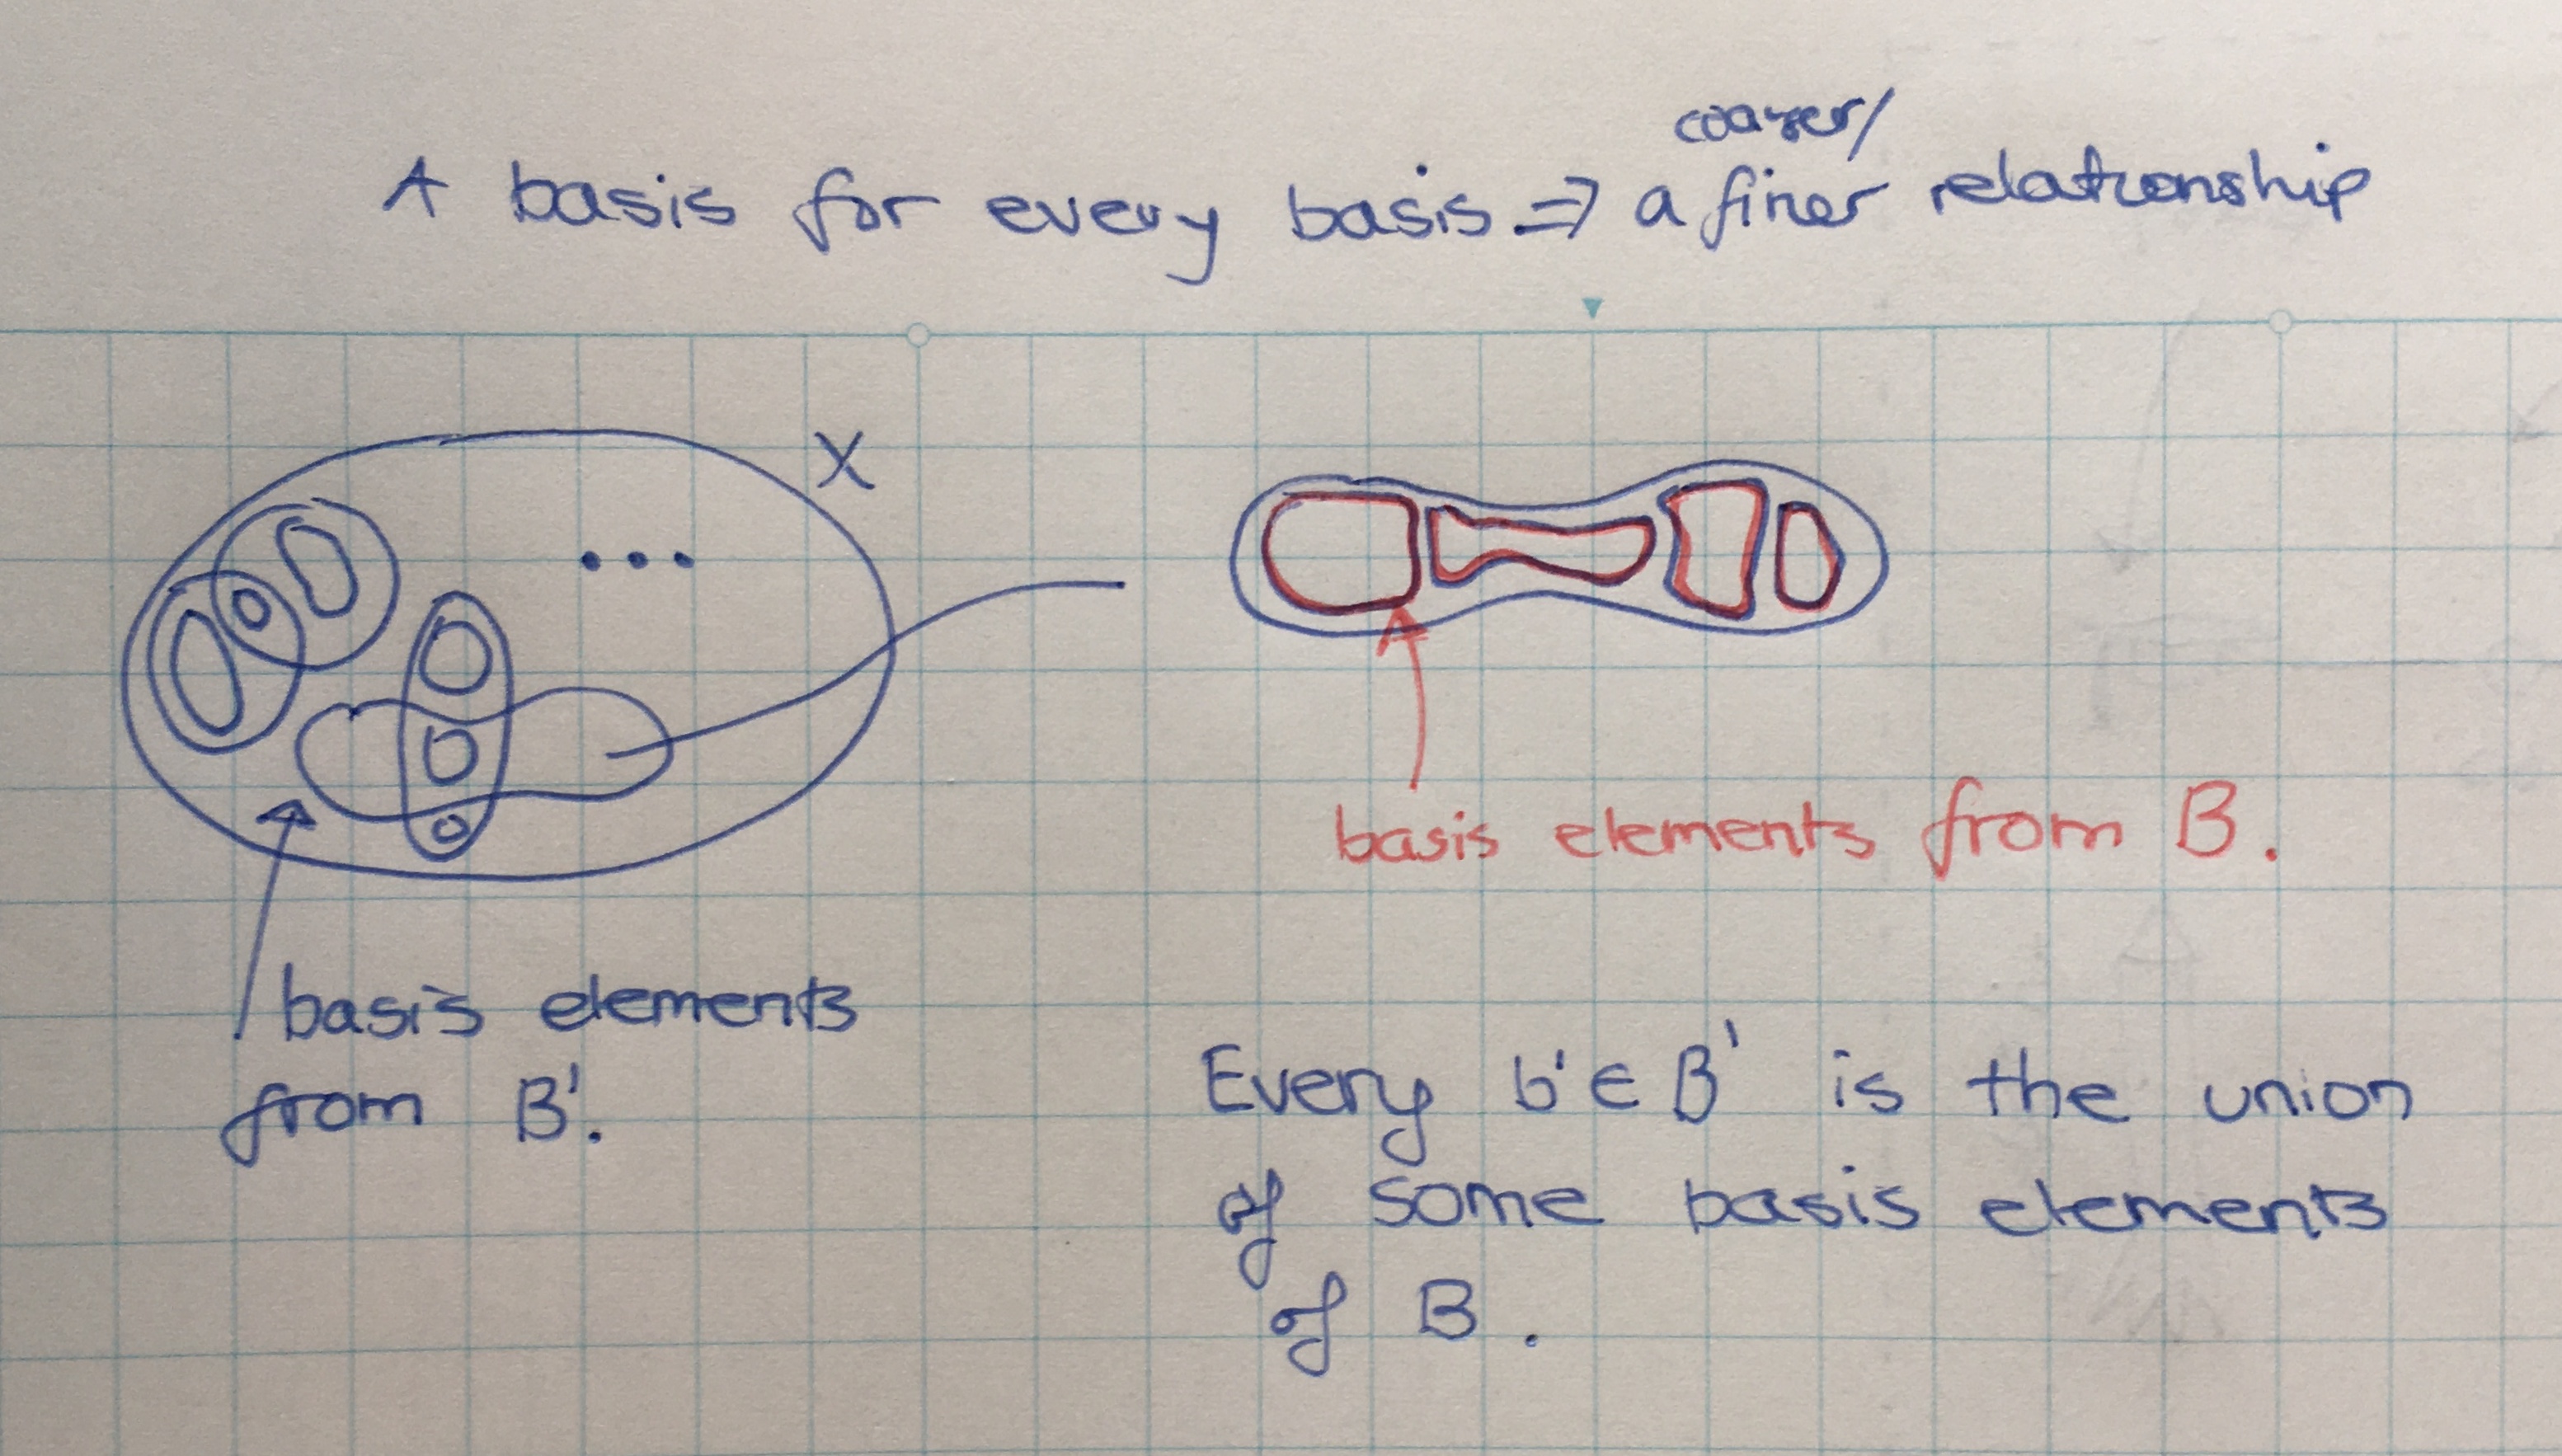 coarser/
A basis for every basis ⇒ a finer relationship
X
basis elements from B.
basis elements
from B'.
Every b' ∈ B' is the union
of some basis elements
of B.